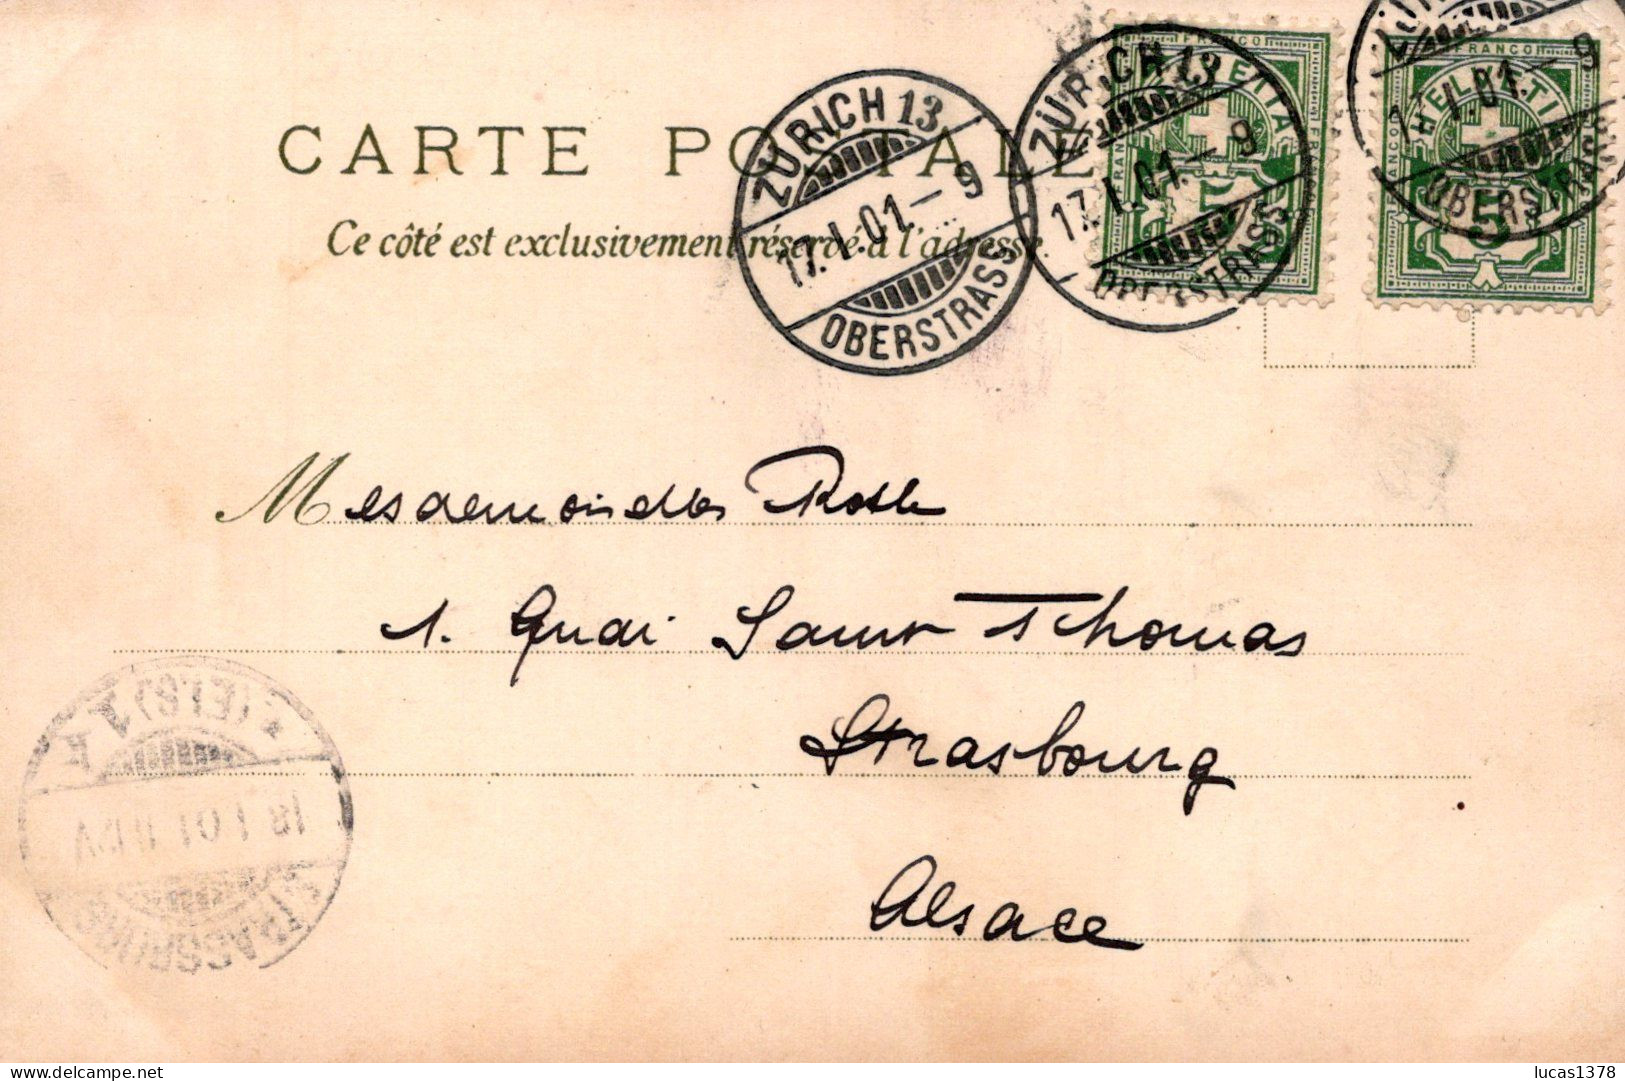 CARTE POSTALE
Ce côté est exclusivement réservé à l'adresse.
ZÜRICH 13
17. I. 01. – 9
OBERSTRASS
ZÜRICH 13
17. I. 01. – 9
OBERSTRASS
17. I. 01. – 9
OBERSTRASS
FRANCO
HELVETIA
5
FRANCO
HELVETIA
5
Mesdemoiselles
1. Quai Saint Thomas
Strasbourg
Alsace
(ELS)
18 1 01
STRASSBURG
delcampe.net
lucas1378